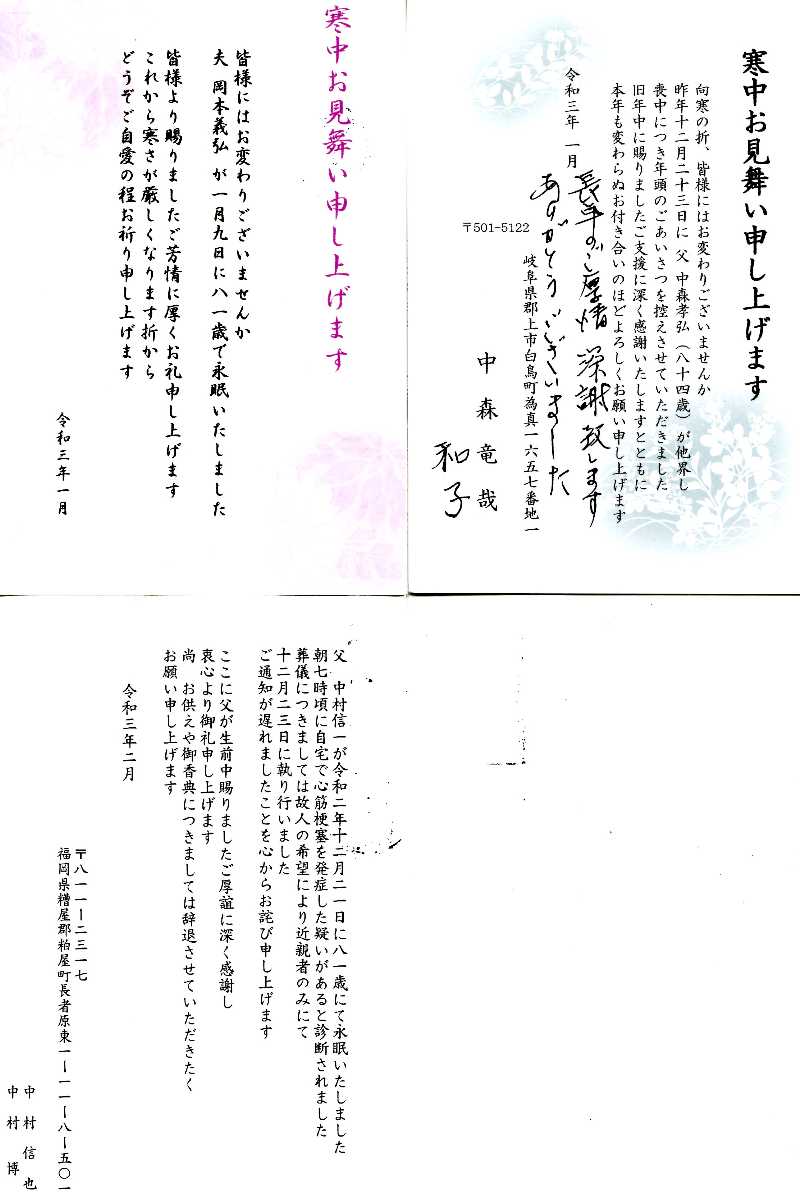 寒中お見舞い申し上げます
向寒の折、皆様にはお変わりございませんか
昨年十二月二十三日に 父 中森孝弘(八十四歳)が他界し
喪中につき年頭のごあいさつを控えさせていただきました
旧年中に賜りましたご支援に深く感謝いたしますとともに
本年も変わらぬお付き合いのほどよろしくお願い申し上げます
令和三年 一月
長年のご厚情 深謝致します
ありがとうございました
〒501-5122
岐阜県郡上市白鳥町為真一六五七番地一
中森竜哉
和子
寒中お見舞い申し上げます
皆様にはお変わりございませんか
夫 岡本義弘 が一月九日に八一歳で永眠いたしました
皆様より賜りましたご芳情に厚くお礼申し上げます
これから寒さが厳しくなります折から
どうぞご自愛の程お祈り申し上げます
令和三年一月
父 中村信一が令和二年十二月二一日に八一歳にて永眠いたしました
朝七時頃に自宅で心筋梗塞を発症した疑いがあると診断されました
葬儀につきましては故人の希望により近親者のみにて
十二月二三日に執り行いました
ご通知が遅れましたことを心からお詫び申し上げます
ここに父が生前中賜りましたご厚誼に深く感謝し
衷心より御礼申し上げます
尚 お供えや御香典につきましては辞退させていただきたく
お願い申し上げます
令和三年二月
〒八一一ー二三一七
福岡県糟屋郡粕屋町長者原東一ー一一ー八ー五〇一
中村信也
中村博